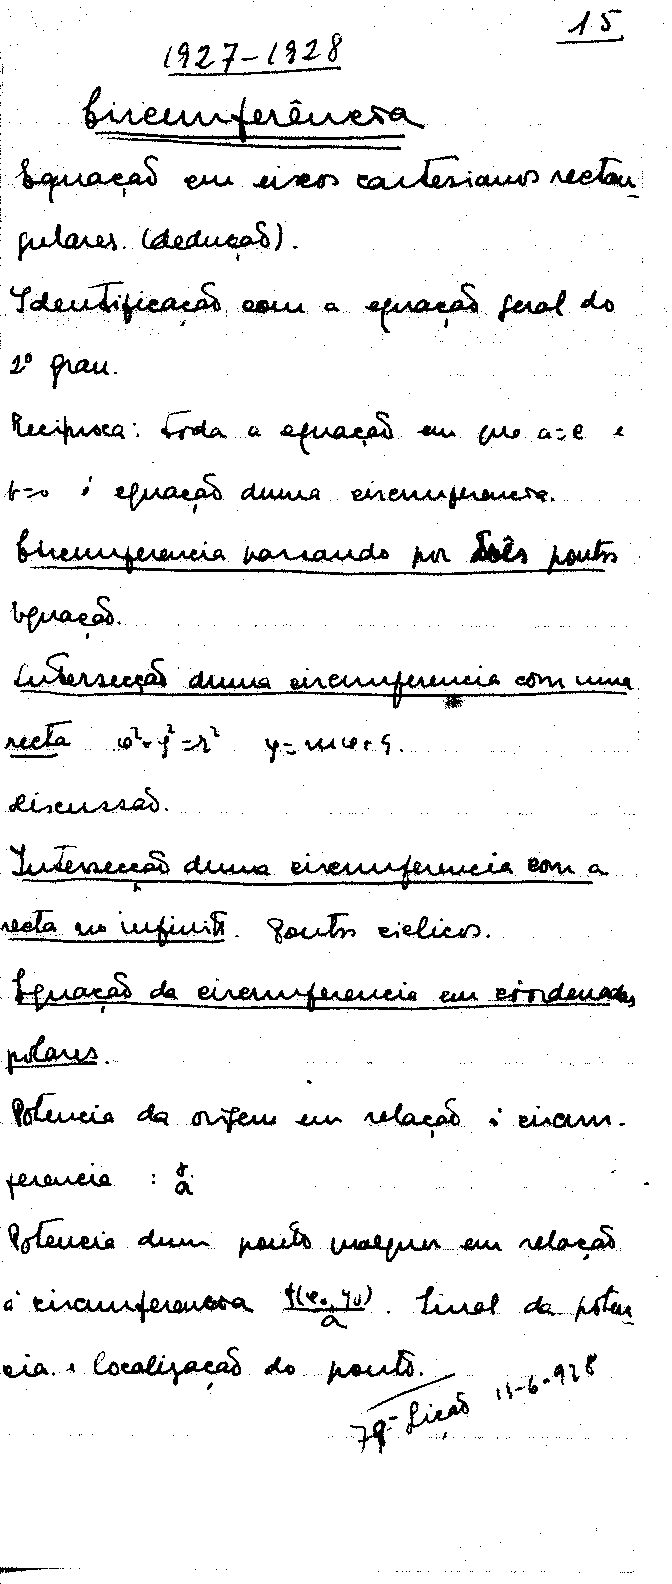 15
1927-1928
Circunferência
Equação em eixos cartesianos rectan-
gulares. (dedução).
Identificação com a equação geral do
2º grau.
Reciproca: toda a equação em que a=c e
b=0 é equação duma circunferencia.
Circunferencia passando por três pontos
Equação.
Intersecção duma circunferencia com uma
recta x²+y²=r² y=mx+
discussão.
Intersecção duma circunferencia com a
recta no infinito. Pontos ciclicos.
Equação da circunferencia em coordenadas
polares.
Potencia da origem em relação á circun-
ferencia : f/a
Potencia dum ponto qualquer em relação
á circunferencia f(x₀, y₀)/a. Sinal da poten-
cia e localização do ponto.
Lição 15-6-928